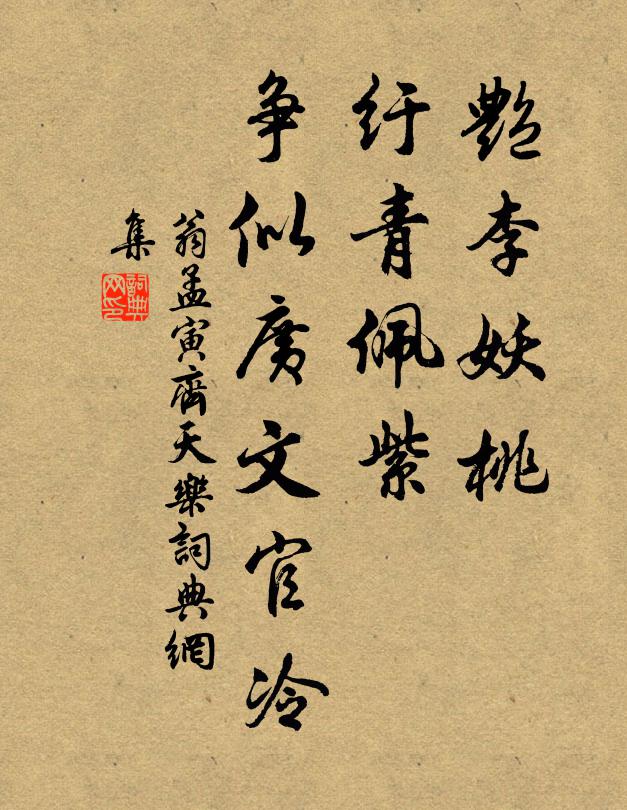 艷李妖桃
紆青佩紫
争似廣文官冷
翁孟寅齊天樂詞典網
集
詞典
网印